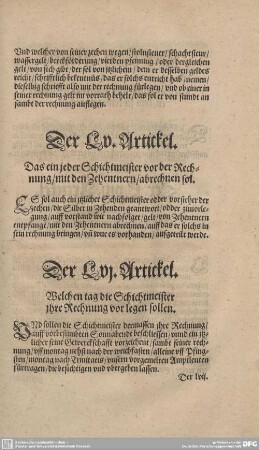 Vnd welcher von seiner zechen wegen / stolnsteuer / schachtsteur /
wassergelt / bercksfoderung / vierden pfenning / oder dergleichen
gelt / von sich gibt / der sol von itzlichem / dem er desselben geldes
reicht / schrifftlich bekentnüs / das er solchs entricht hab / nemen /
dieselbig schriefft also mit der rechnung fürlegen / vnd ob einer in
seiner rechnung gelt im vorrath behelt / das sol er von stundt an
sambt der rechnung aufflegen.
Der Lv. Artickel.
Das ein jeder Schichtmeister vor der Rech-
nung / mit den Zehentnern / abrechnen sol.
ES sol auch ein itzlicher Schichtmeister oder vorseher der
zechen / die Silber in Zehenden geantwort / oder zuuorle-
gung / auff vorstand wie nachfolget / gelt / von Zehentnern
empfangt / mit den Zehentnern abrechnen / auff das er solchs in
sein rechnung bringen / vñ wue es vorhanden / aufgeteilt werde.
Der Lvj. Artickel.
Welchen tag die Schichtmeister
ihre Rechnung vor legen sollen.
VNd sollen die Schichtmeister dermassen ihre Rechnung /
auff vorbestimbten Sonnabende beschliessen / vnnd ein itzlicher
seine Gewerckschafft vorzeichent / sambt seiner rech-
nung / vff montag nehst nach der weichfasten / alleine vff Pfing-
sten / montag nach Trinitatis / vnsern vorgemelten Amptleuten
fürtragen / die besichtigen vnd vbergeben lassen.
Der lvij.